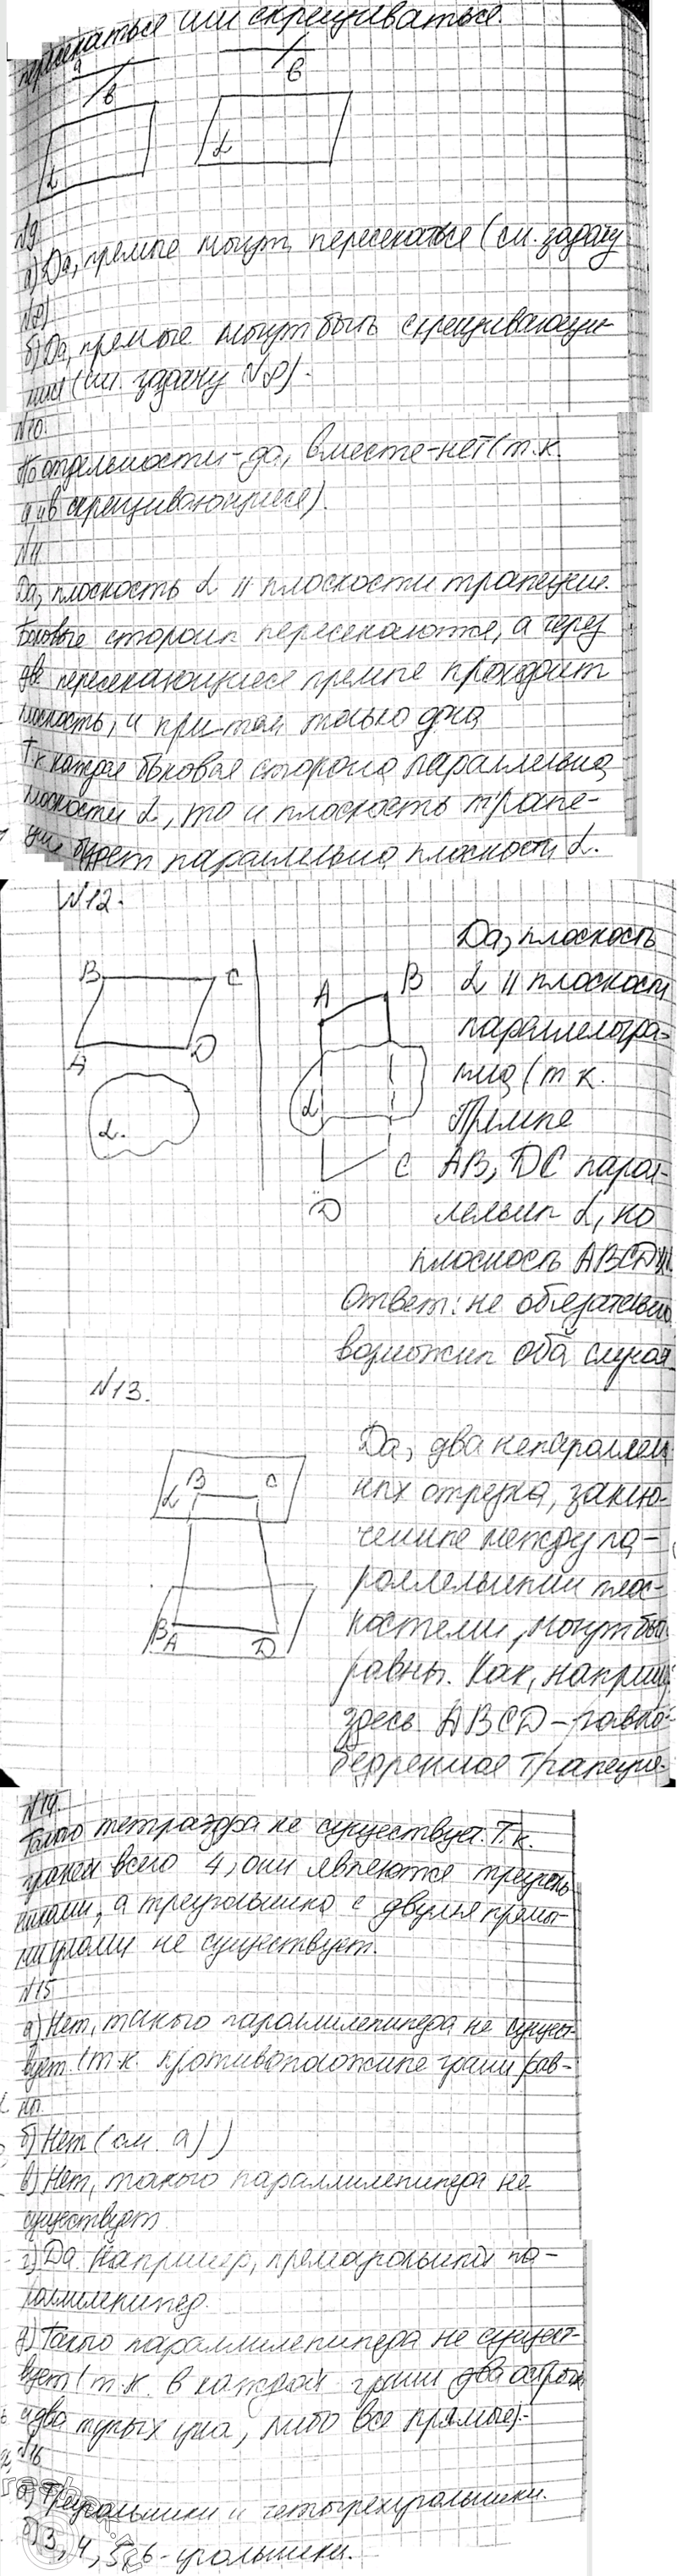 пересекаться или скрещиваться.
а
в
в
α
α
№9
а) Да, прямые могут пересекаться (см. задачу
№8)
б) Да, прямые могут быть скрещивающи-
мися (см. задачу №8).
№10.
По отдельности - да, вместе - нет (т.к.
а и в скрещивающиеся).
№11
Да, плоскость α || плоскости трапеции.
Боковые стороны пересекаются, а через
две пересекающиеся прямые проходит
плоскость, и притом только одна
Т.к. каждая боковая сторона параллельна
плоскости α, то и плоскость трапе-
ции будет параллельна плоскости α.
№12.
B
C
A
D
α.
A
B
α
C
D
Да, плоскость
α || плоскости
параллелогра-
мма (т.к.
Прямые
AB, DC парал-
лельны α, но
плоскость ABCD
Ответ: не обязательно
возможны оба случая
№13.
α
B
C
B
A
D
Да, два непараллель
ных отрезка, заклю-
ченные между па-
раллельными плос-
костями, могут быть
равны. Как, например
здесь ABCD - равно-
бедренная трапеция.
№14.
Такого тетраэдра не существует. Т.к.
граней всего 4, они являются треуголь
никами, а треугольника с двумя прямы-
ми углами не существует.
№15
а) Нет, такого параллилепипеда не сущест-
вует. (т.к. противоположные грани рав-
ны.
б) Нет (см. а))
в) Нет, такого параллилепипеда не
существует
г) Да. Например, прямоугольный па-
раллилепипед.
д) Такого параллилепипеда не сущест-
вует (т.к. в каждой грани два острых
и два тупых угла, либо все прямые).
№16
а) Треугольники и четырехугольники.
б) 3, 4, 5, 6 - угольники.